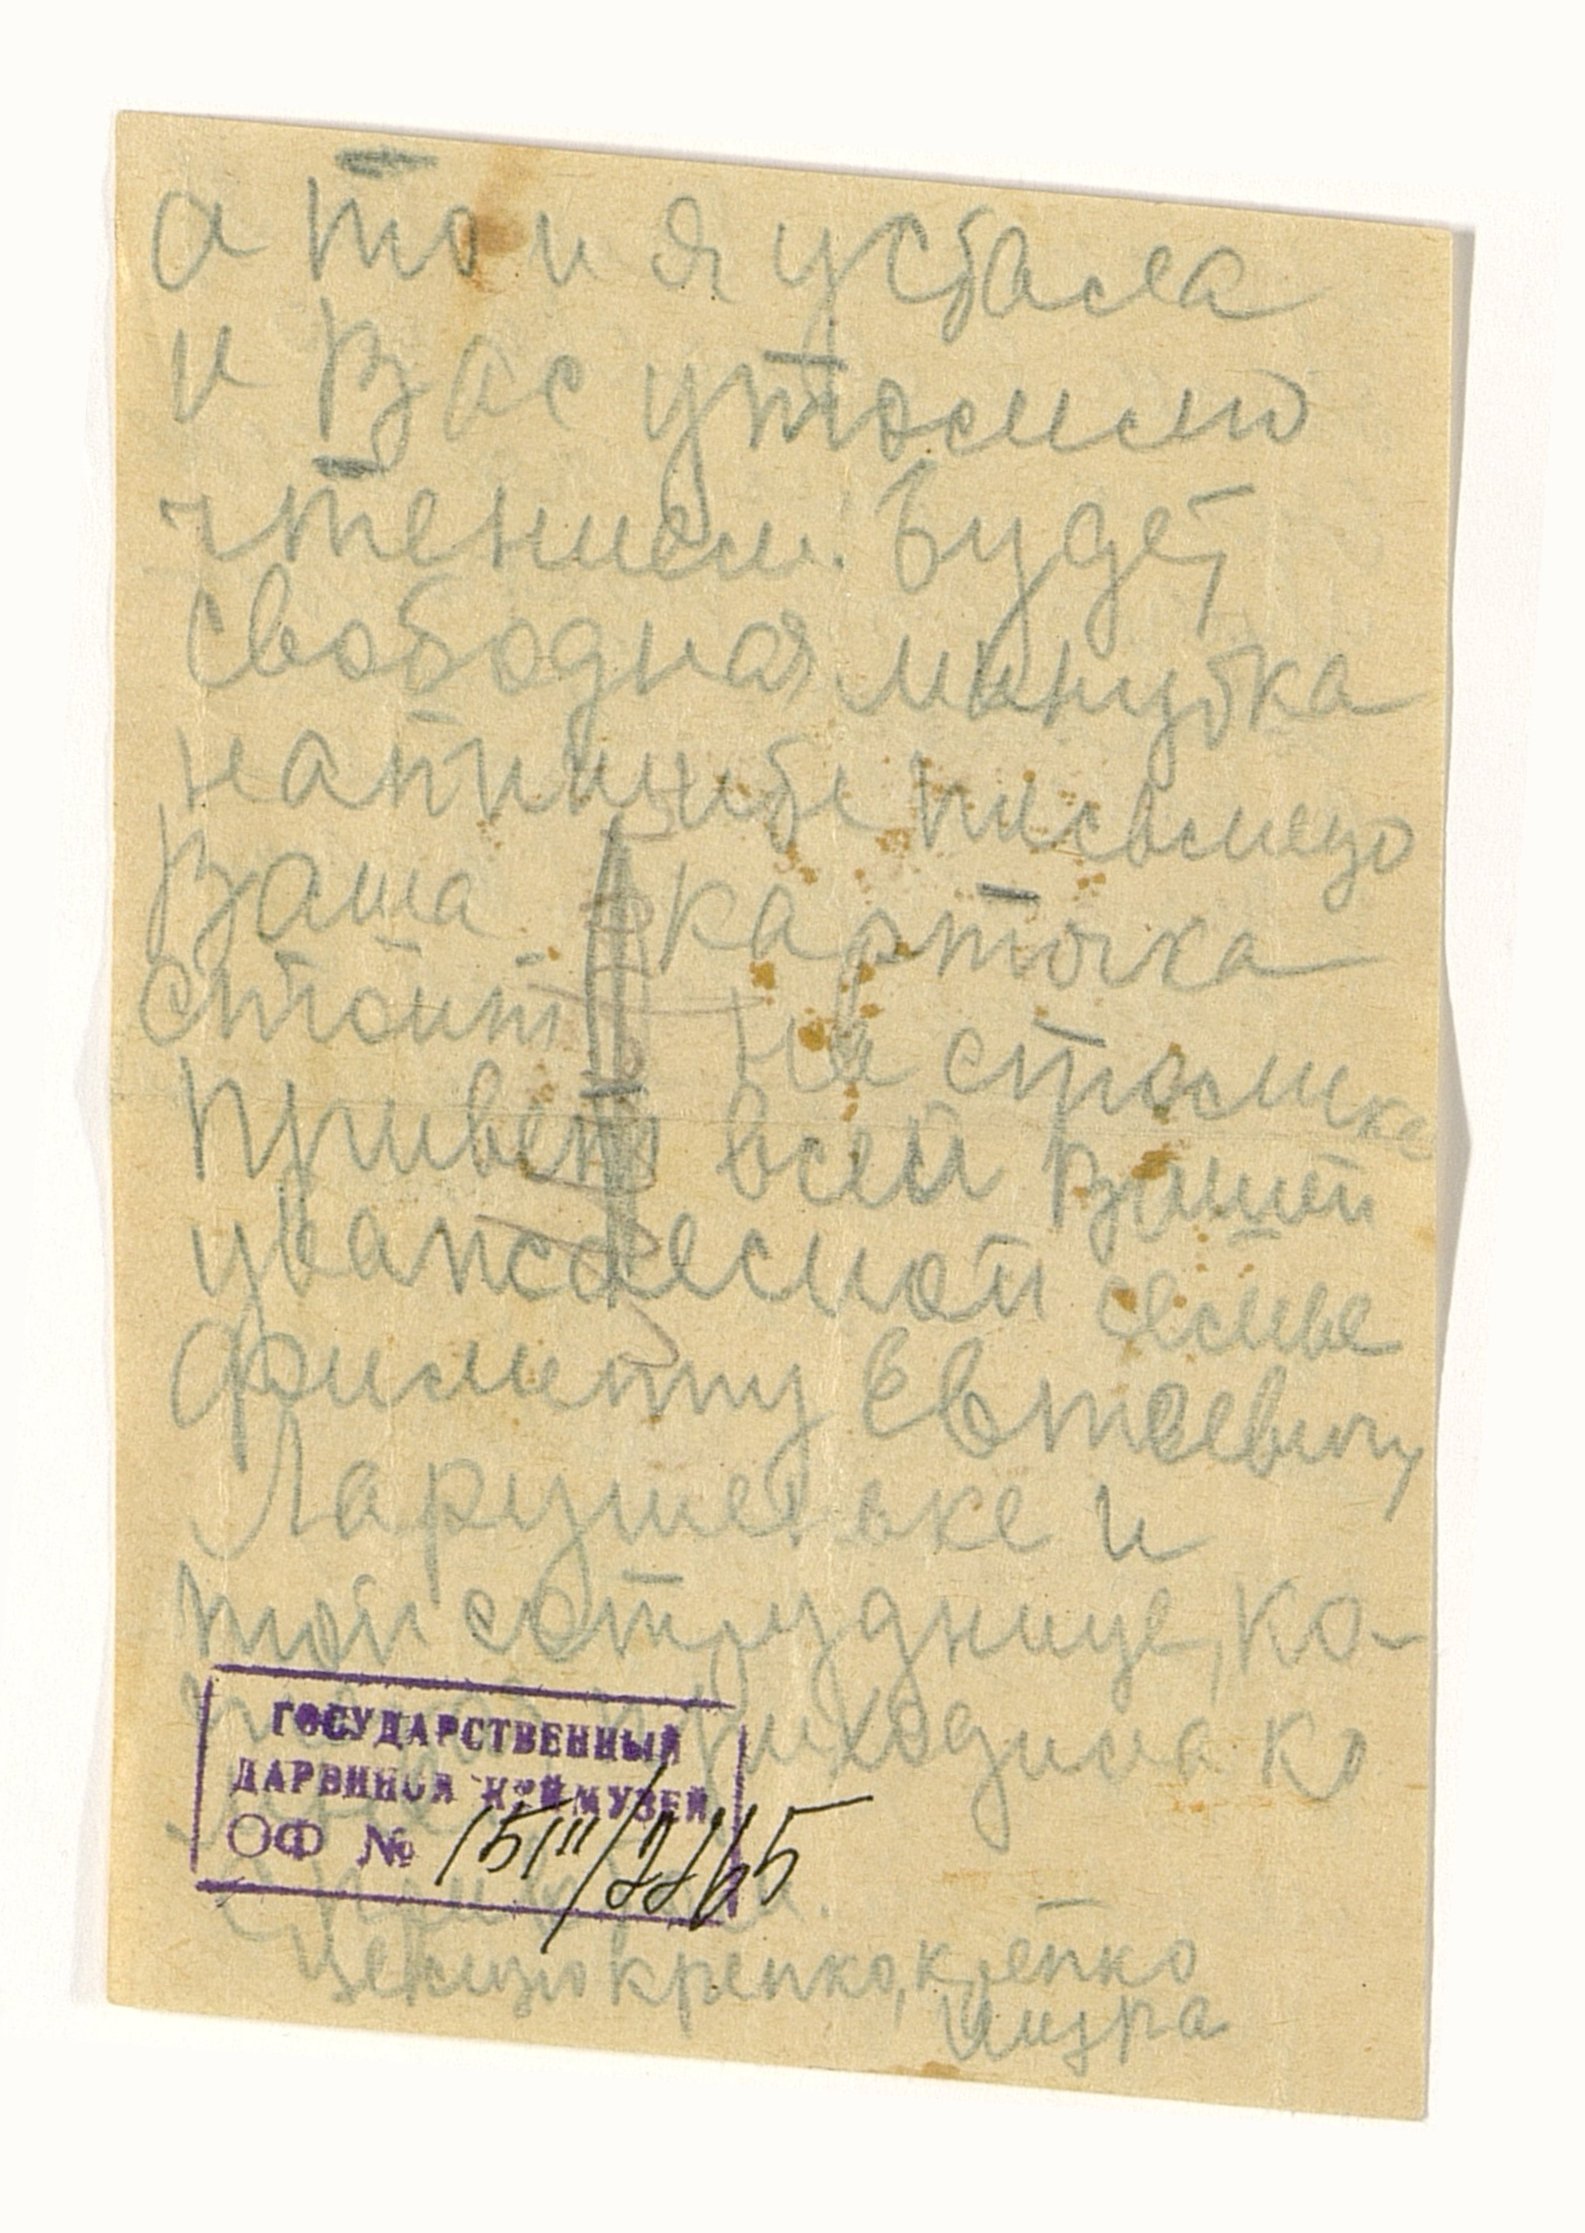 а то и я устала
и Вас утомлю
чтением. Будет
свободная минутка
напишите письмецо
Ваша карточка
стоит на столике
привет всей Вашей
уважаемой семье
Филиппу Евтеевичу
Ларушеньке и
той сотруднице, ко-
приходила ко
ГОСУДАРСТВЕННЫЙ
ДАРВИНСКИЙ МУЗЕЙ
ОФ № 15111/2265
целую крепко, крепко